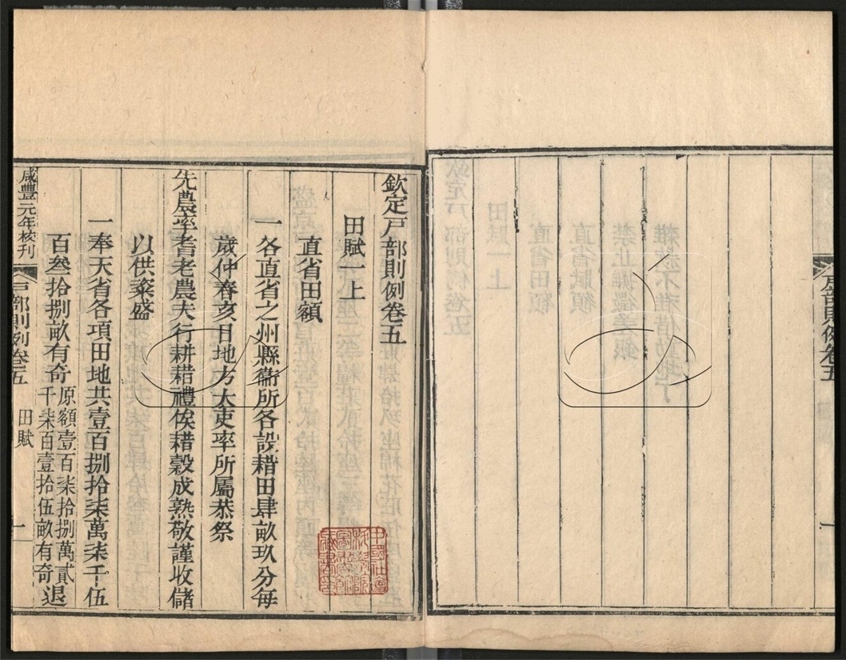 欽定戶部則例卷五
田賦一上
直省田額
一各直省之州縣衞所各設耤田肆畝玖分每
歲仲春亥日地方大吏率所屬恭祭
先農率耆老農夫行耕耤禮俟耤穀成熟敬謹收儲
以供粢盛
一奉天省各項田地共壹百捌拾柒萬柒千伍
百叁拾捌畝有奇
原額壹百柒拾捌萬貳
千柒百壹拾伍畝有奇
退
咸豐元年校刊
戶部則例卷五
田賦
一
戶部則例卷五